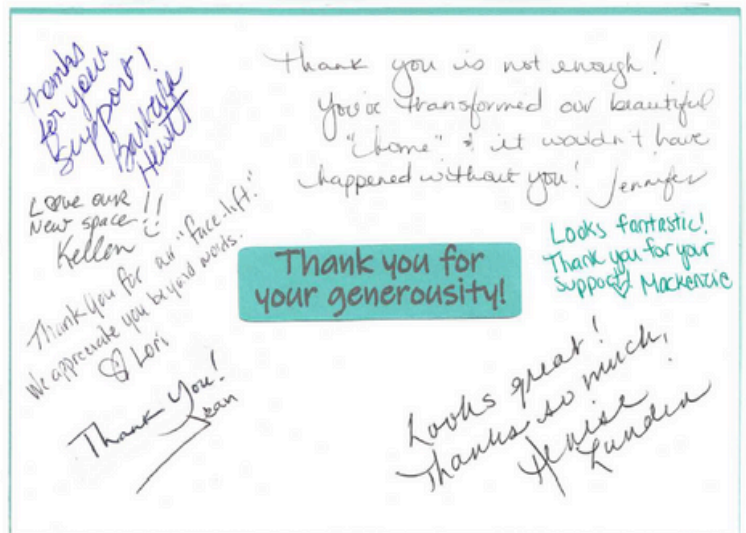 Thanks
for your
support!
Barbara
Hewitt
Thank you is not enough!
You've transformed our beautiful
"home" & it wouldn't have
happened without you! Jennifer
Love our
New space!!
Kellen
Thank you for our "face-lift."
We appreciate you beyond words.
Lori
Thank you for
your generousity!
Looks fantastic!
Thank you for your
support! Mackenzie
Thank You!
Jean
Looks great!
Thanks so much,
Denise
Lunden